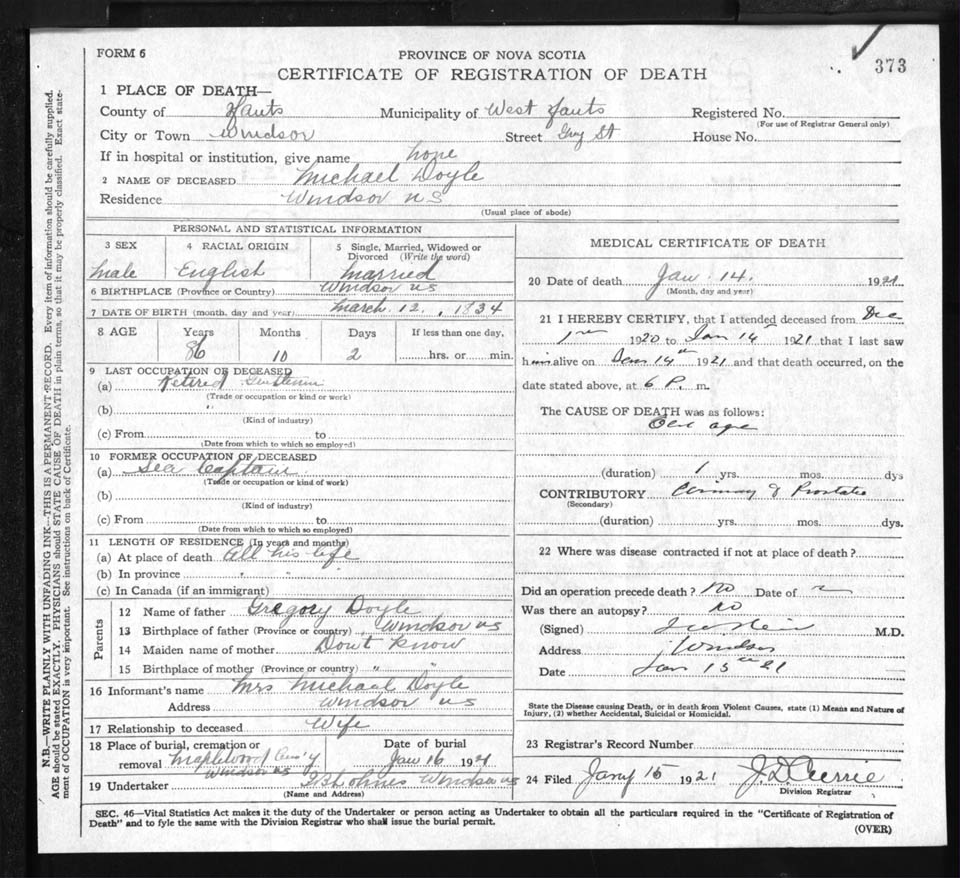 FORM 6
373
PROVINCE OF NOVA SCOTIA
CERTIFICATE OF REGISTRATION OF DEATH
1 PLACE OF DEATH—
County of Hants Municipality of West Hants Registered No.
(For use of Registrar General only)
City or Town Windsor Street Grey St House No.
If in hospital or institution, give name home
2 NAME OF DECEASED Michael Doyle
Residence Windsor N S
(Usual place of abode)
PERSONAL AND STATISTICAL INFORMATION
3 SEX 4 RACIAL ORIGIN 5 Single, Married, Widowed or Divorced (Write the word)
Male English Married
6 BIRTHPLACE (Province or Country) Windsor N S
7 DATE OF BIRTH (month, day and year) March. 12, 1834
8 AGE Years Months Days If less than one day,
86 10 2 hrs. or min.
9 LAST OCCUPATION OF DECEASED
(a) Retired
(Trade or occupation or kind or work)
(b) "
(Kind of industry)
(c) From to
(Date from which to which so employed)
10 FORMER OCCUPATION OF DECEASED
(a) Sea Captain
(Trade or occupation or kind of work)
(b)
(Kind of industry)
(c) From to
(Date from which to which so employed)
11 LENGTH OF RESIDENCE (In years and months)
(a) At place of death all his life
(b) In province " "
(c) In Canada (if an immigrant)
Parents
12 Name of father Gregory Doyle
13 Birthplace of father (Province or country) Windsor N S
14 Maiden name of mother Don't know
15 Birthplace of mother (Province or country) " "
16 Informant's name Mrs Michael Doyle
Address Windsor N S
17 Relationship to deceased Wife
18 Place of burial, cremation or removal Maplewood Cem'y Windsor N S
Date of burial Jan 16 1921
19 Undertaker Windsor N S
(Name and Address)
MEDICAL CERTIFICATE OF DEATH
20 Date of death Jan. 14. 1921
(Month, day and year)
21 I HEREBY CERTIFY, that I attended deceased from Dec
1920 to Jan 14th 1921 that I last saw
him alive on Jan 14th 1921 and that death occurred, on the
date stated above, at 6 P. m.
The CAUSE OF DEATH was as follows:
Old age
(duration) 1 yrs. mos. dys
CONTRIBUTORY Prostate
(Secondary)
(duration) yrs. mos. dys.
22 Where was disease contracted if not at place of death?
Did an operation precede death? No Date of
Was there an autopsy? No
(Signed) M.D.
Address Windsor
Date Jan 15th 21
State the Disease causing Death, or in death from Violent Causes, state (1) Means and Nature of
Injury, (2) whether Accidental, Suicidal or Homicidal.
23 Registrar's Record Number
24 Filed Jany 15 1921 J. D. Currie
Division Registrar
SEC. 46—Vital Statistics Act makes it the duty of the Undertaker or person acting as Undertaker to obtain all the particulars required in the "Certificate of Registration of
Death" and to fyle the same with the Division Registrar who shall issue the burial permit.
(OVER)
N.B.—WRITE PLAINLY WITH UNFADING INK—THIS IS A PERMANENT RECORD. Every item of information should be carefully supplied.
AGE should be stated EXACTLY. PHYSICIANS should STATE CAUSE OF DEATH in plain terms, so that it may be properly classified. Exact state-
ment of OCCUPATION is very important. See instructions on back of Certificate.